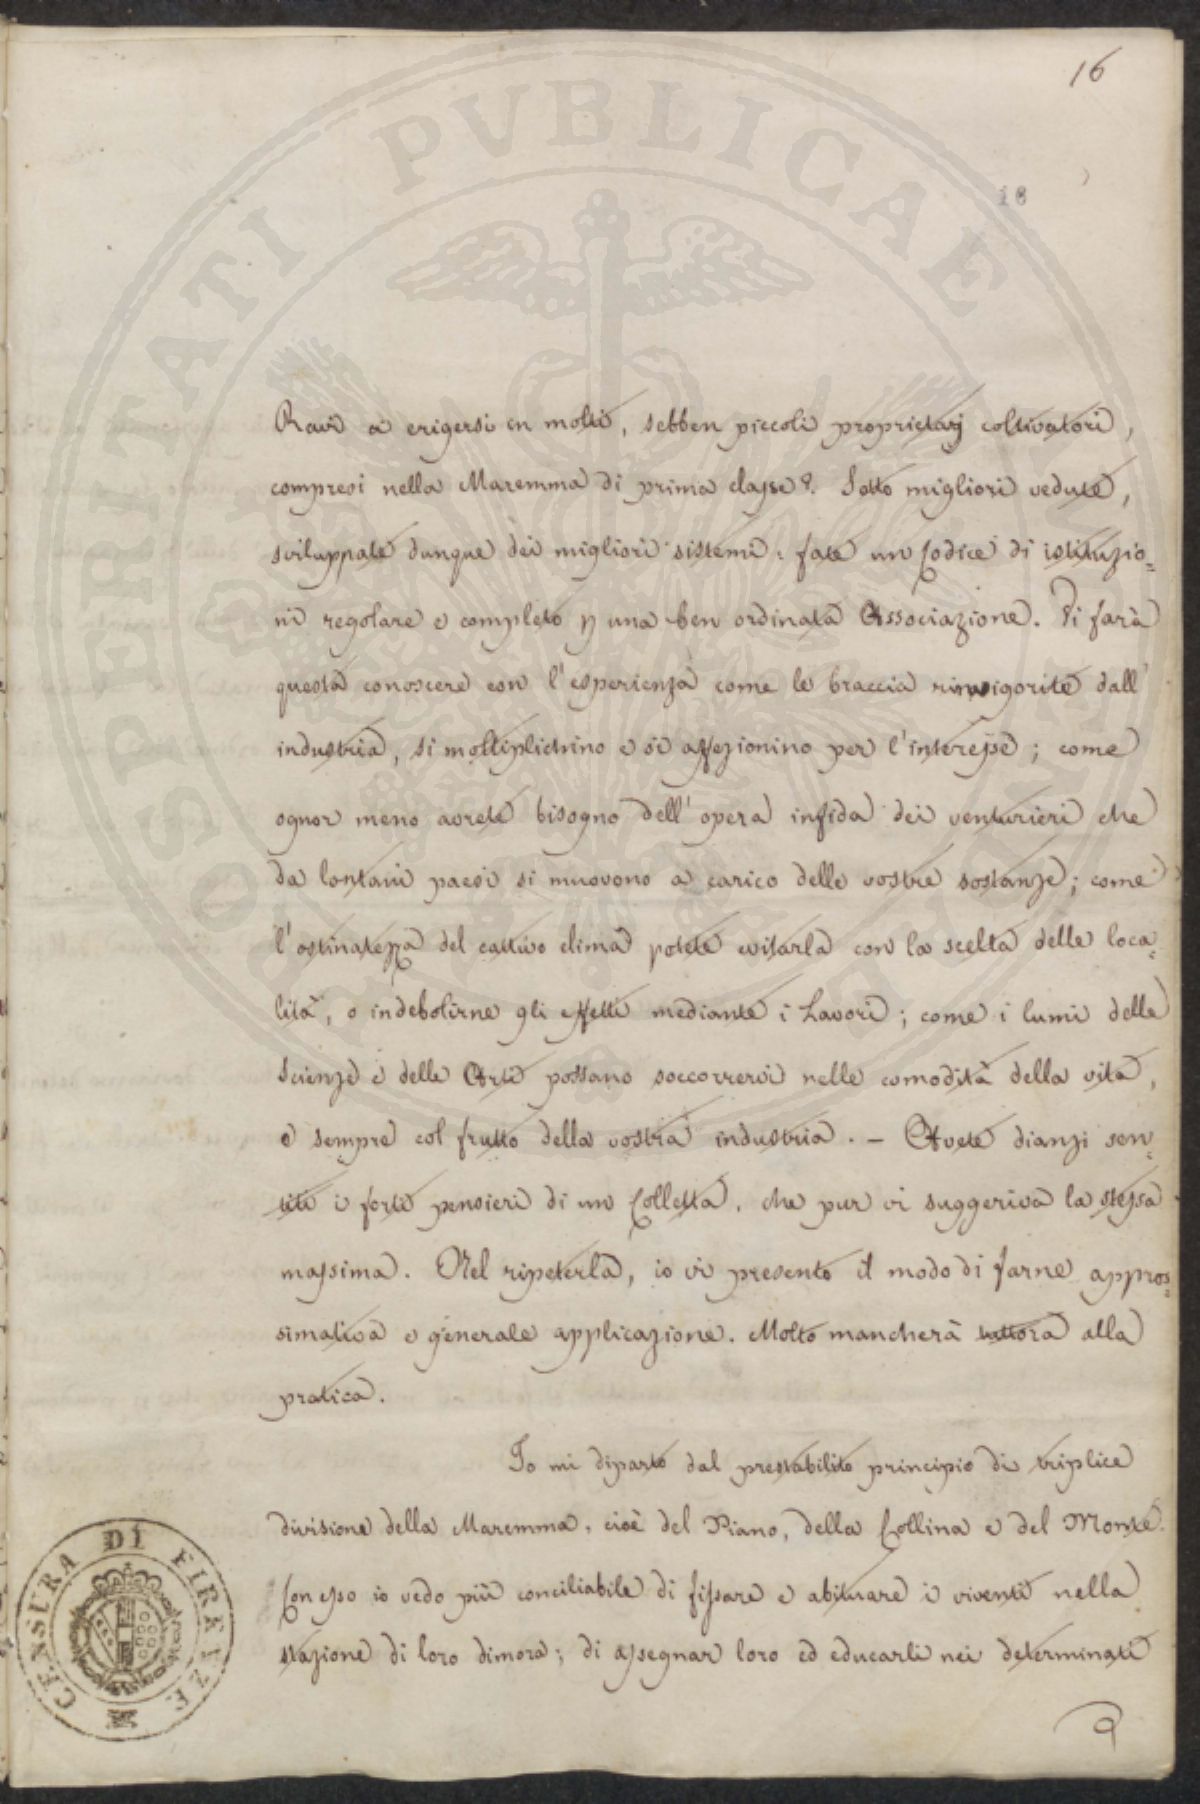 16
18
Ravi a erigersi in molti, sebben piccoli proprietarj coltivatori,
compresi nella Maremma di prima classe?. Sotto migliori vedute,
sviluppate dunque dei migliori sistemi: fate un Codice di istituzio=
ni regolare e completo p una ben ordinata Associazione. Vi farà
questa conoscere con l'esperienza come le braccia rinvigorite dall'
industria, si moltiplichino e si affezionino per l'interesse; come
ognor meno avrete bisogno dell'opera infida dei venturieri che
da lontani paesi si muovono a carico delle vostre sostanze; come
l'ostinatezza del cattivo clima potete evitarla con la scelta delle loca=
lità, o indebolirne gli effetti mediante i Lavori; come i lumi delle
Scienze e delle Arti possano soccorrervi nelle comodità della vita,
e sempre col frutto della vostra industria. – Avete dianzi sen=
titi i forti pensieri di un Colletta, che pur vi suggeriva la stessa
massima. Nel ripeterla, io vi presento il modo di farne appros=
simativa e generale applicazione. Molto mancherà tuttora alla
pratica.
Io mi diparto dal prestabilito principio di triplice
divisione della Maremma, cioè del Piano, della Collina e del Monte.
Con esso io vedo più conciliabile di fissare e abituare i viventi nella
stazione di loro dimora; di assegnar loro ed educarli nei determinati
CENSURA DI FIRENZE
PROSPERITATI PUBLICAE